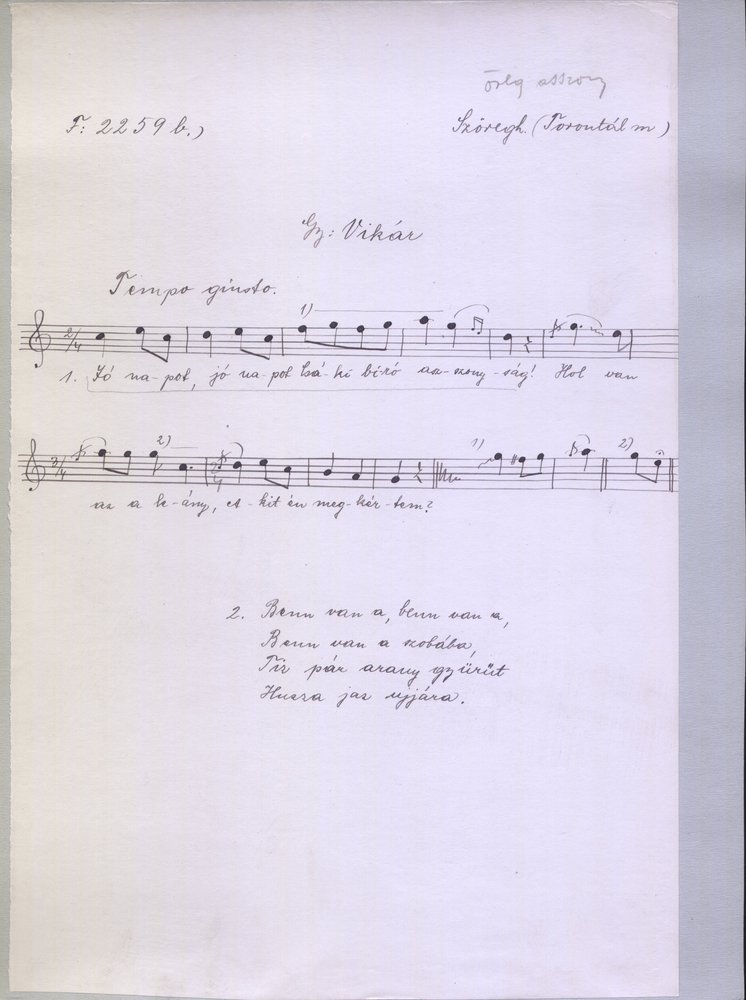 öreg asszony
F: 2259 b.)
Szöregh. (Torontál m)
Gy: Vikár
Tempo giusto.
1)
2/4
1. Jó na-pot, jó na-pot bá-ki bí-ró asz-szony-ság! Hol van
2) 1) 2)
3/4 2/4
az a le-ány, a-kit én meg-kér-tem?
2. Benn van a, benn van a,
Benn van a szobába,
Tiz pár arany gyürüt
Huzza jaz ujjára.